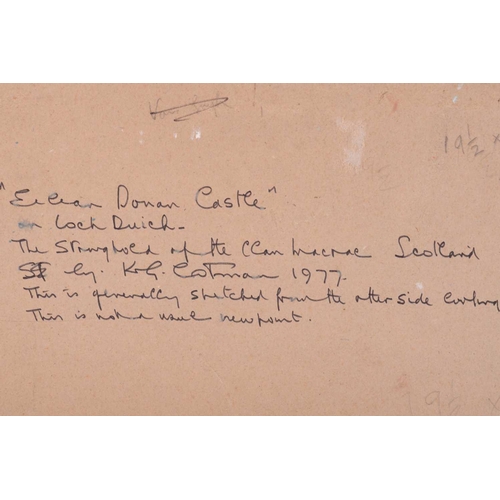 19½ x
"Eilean Donan Castle"
on Loch Duich-
The Stronghold of the Clan Macrae Scotland
by. K.G. Cotman 1977.
This is generally sketched from the other side looking
This is not a usual viewpoint.
9½ x